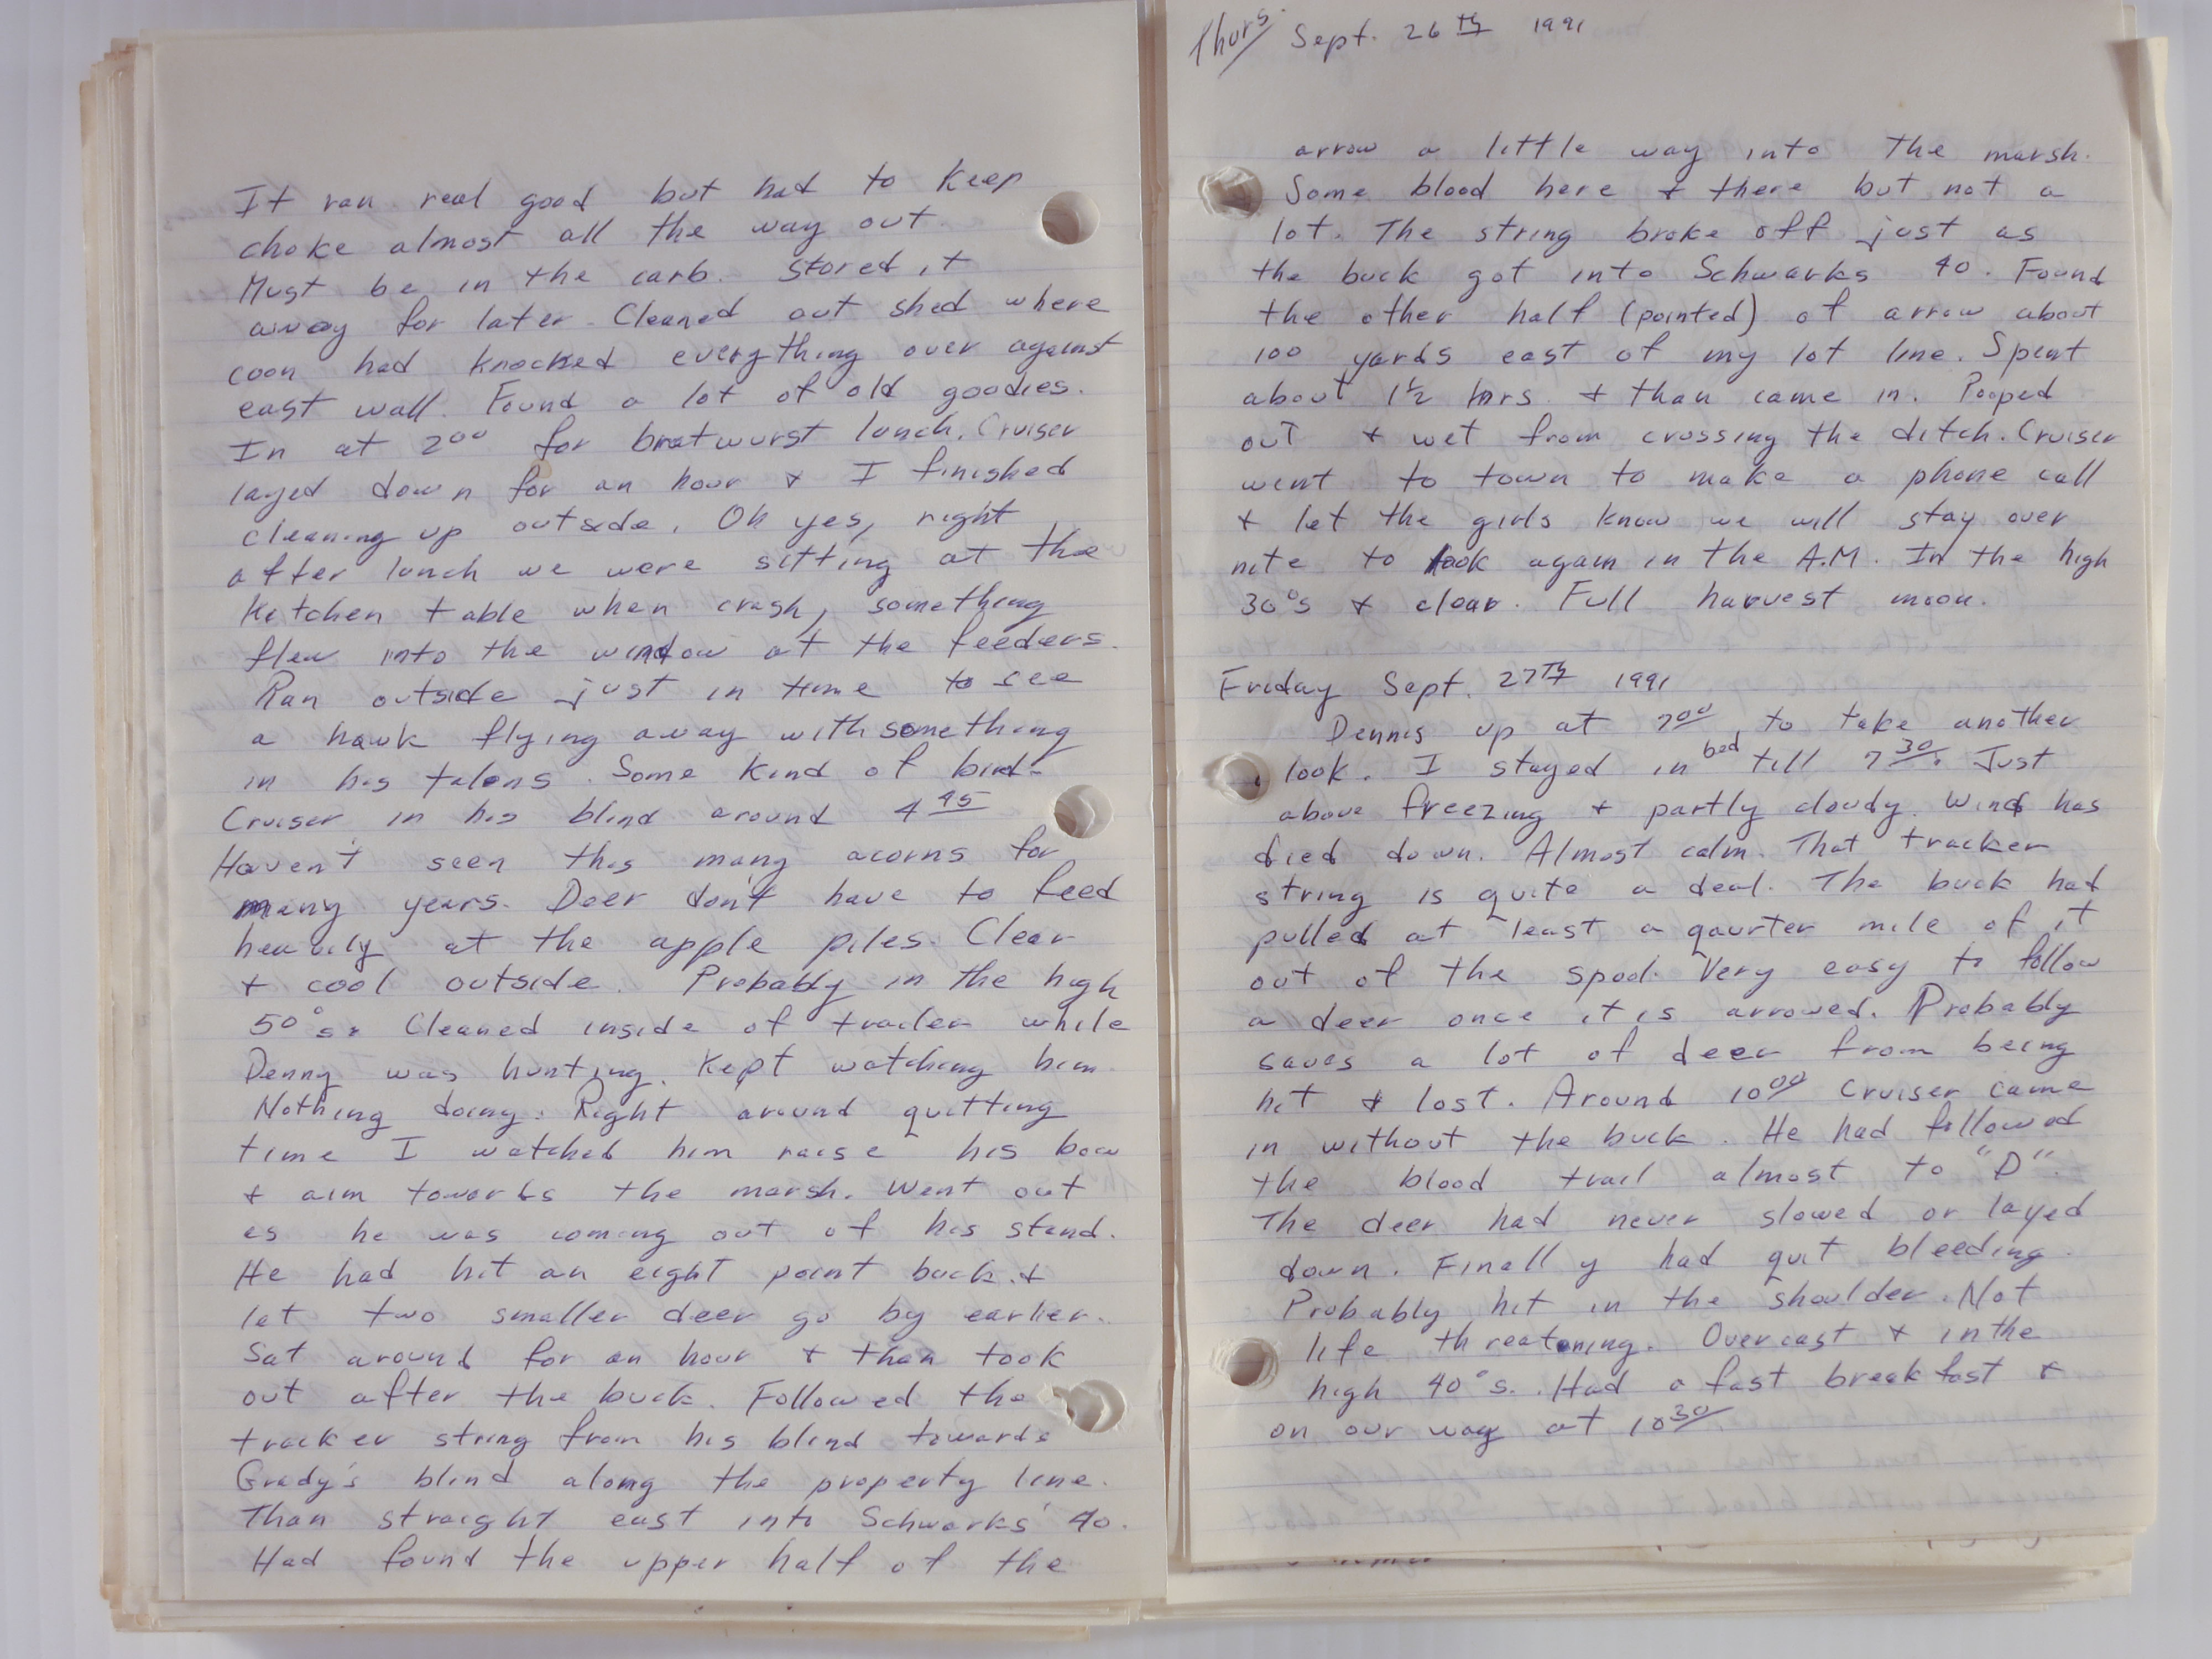 It ran real good but had to keep
choke almost all the way out.
Must be in the carb. Stored it
away for later. Cleaned out shed where
coon had knocked everything over against
east wall. Found a lot of old goodies.
In at 2⁰⁰ for bratwurst lunch. Cruiser
layed down for an hour & I finished
cleaning up outside. Oh yes, right
after lunch we were sitting at the
kitchen table when crash, something
flew into the window at the feeders.
Ran outside just in time to see
a hawk flying away with something
in his talons. Some kind of bird.
Cruiser in his blind around 4⁴⁵
Haven't seen this many acorns for
many years. Deer don't have to feed
heavily at the apple piles. Clear
& cool outside. Probably in the high
50°s. Cleaned inside of trailer while
Denny was hunting. Kept watching him.
Nothing doing. Right around quitting
time I watched him raise his bow
& aim towards the marsh. Went out
as he was coming out of his stand.
He had hit an eight point buck &
let two smaller deer go by earlier.
Sat around for an hour & than took
out after the buck. Followed the
tracker string from his blind towards
Grady's blind along the property line.
Than straight east into Schwarks' 40.
Had found the upper half of the
Thurs Sept. 26th 1991
arrow a little way into the marsh.
Some blood here & there but not a
lot. The string broke off just as
the buck got into Schwarks 40. Found
the other half (pointed) of arrow about
100 yards east of my lot line. Spent
about 1½ hrs & than came in. Pooped
out & wet from crossing the ditch. Cruiser
went to town to make a phone call
& let the girls know we will stay over
nite to look again in the A.M. In the high
30°s & clear. Full harvest moon.
Friday Sept. 27TH 1991
Dennis up at 7⁰⁰ to take another
look. I stayed in bed till 7³⁰. Just
above freezing & partly cloudy. Wind has
died down. Almost calm. That tracker
string is quite a deal. The buck had
pulled at least a qaurter mile of it
out of the spool. Very easy to follow
a deer once it is arrowed. Probably
saves a lot of deer from being
hit & lost. Around 10⁰⁰ Cruiser came
in without the buck. He had followed
the blood trail almost to "D".
The deer had never slowed or layed
down. Finally had quit bleeding.
Probably hit in the shoulder. Not
life threatening. Overcast & in the
high 40°s. Had a fast breakfast &
on our way at 10³⁰